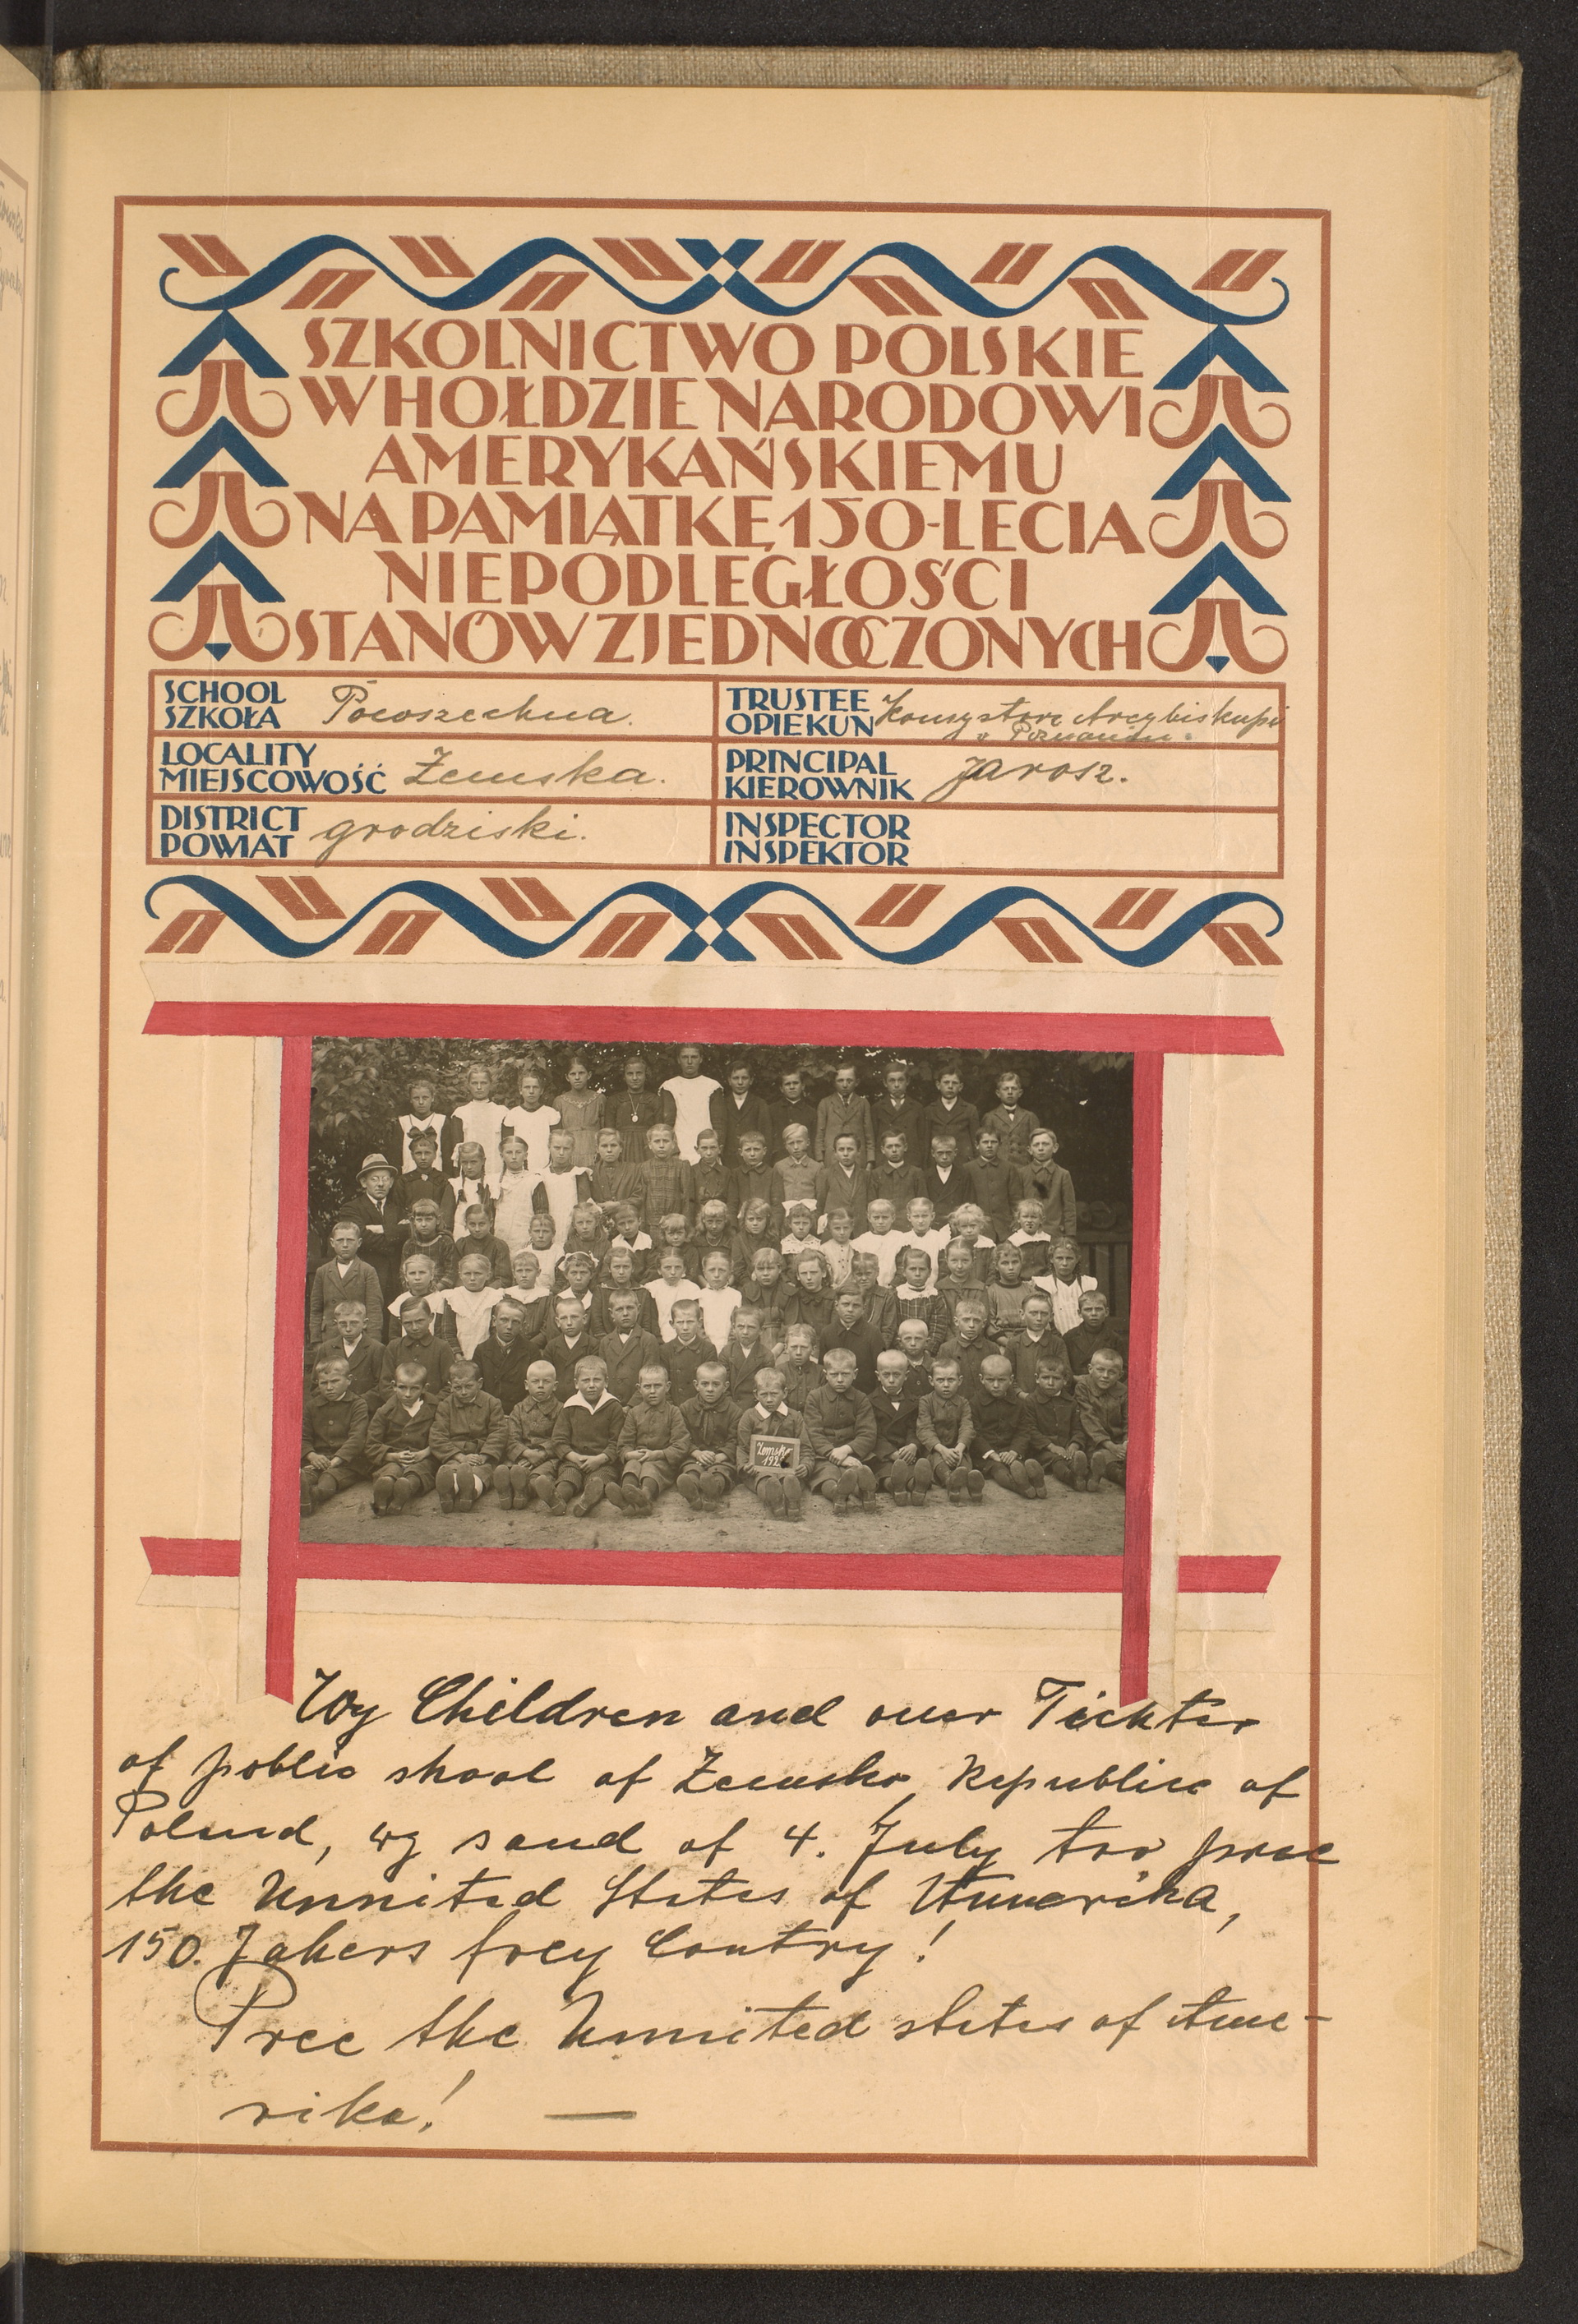 SZKOLNICTWO POLSKIE
W HOŁDZIE NARODOWI
AMERYKAŃSKIEMU
NA PAMIĄTKĘ 150-LECIA
NIEPODLEGŁOŚCI
STANÓW ZJEDNOCZONYCH
SCHOOL
SZKOŁA Powszechna.
TRUSTEE
OPIEKUN Konsystorz Arcybiskupi
w Poznaniu.
LOCALITY
MIEJSCOWOŚĆ Żemska.
PRINCIPAL
KIEROWNIK Jarosz.
DISTRICT
POWIAT grodziski.
INSPECTOR
INSPEKTOR
Żemsko
192
Wy Children and ouer Tichter
of poblic shool of Żemsko, Republice of
Polend, wy sand of 4. July too free
the Unnited Stetes of Amerika,
150. Jahers frey Contry!
Free the Unnited stetes of Ame-
rika! —